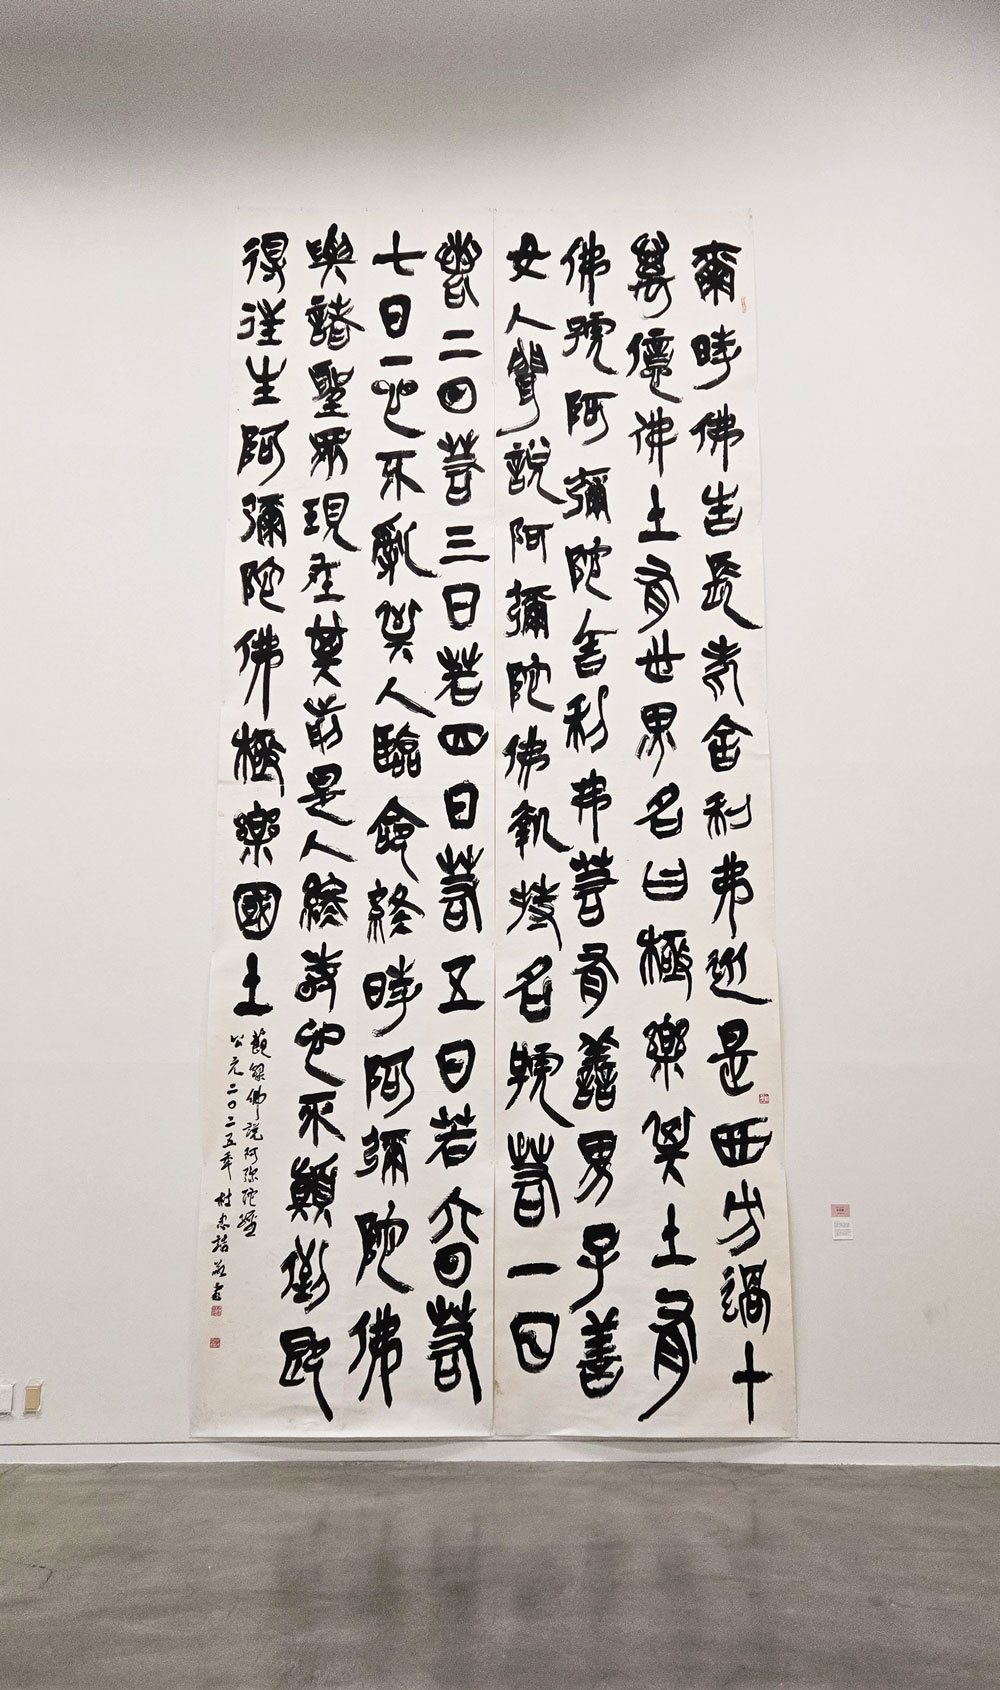 爾時佛告長老舍利弗從是西方過十
萬億佛土有世界名曰極樂其土有
佛號阿彌陀舍利弗若有善男子善
女人聞說阿彌陀佛執持名號若一日
若二日若三日若四日若五日若六日若
七日一心不亂其人臨命終時阿彌陀佛
與諸聖眾現在其前是人終時心不顛倒即
得往生阿彌陀佛極樂國土
節錄佛說阿弥陀經
公元二〇二五年 杜忠誥敬書